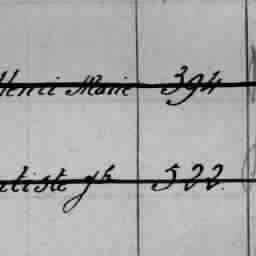 Henri Marie 394
tiste gh 522.